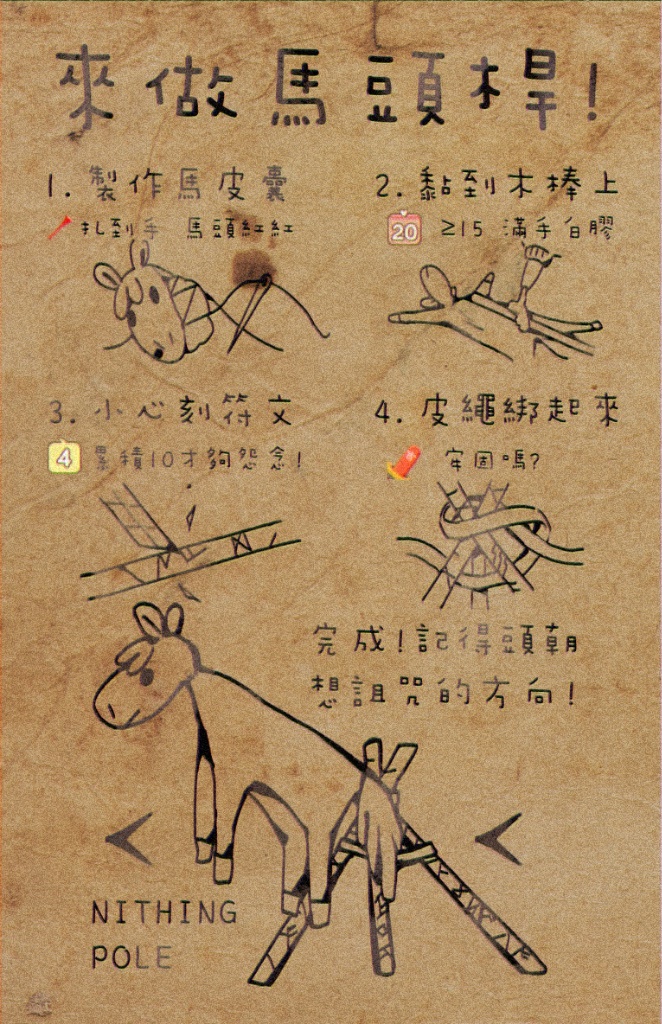 來做馬頭桿!
1. 製作馬皮囊
扎到手 馬頭紅紅
2. 黏到木棒上
20 ≥15 滿手白膠
3. 小心刻符文
4 累積10才夠怨念!
4. 皮繩綁起來
牢固嗎?
完成!記得頭朝
想詛咒的方向!
NITHING
POLE